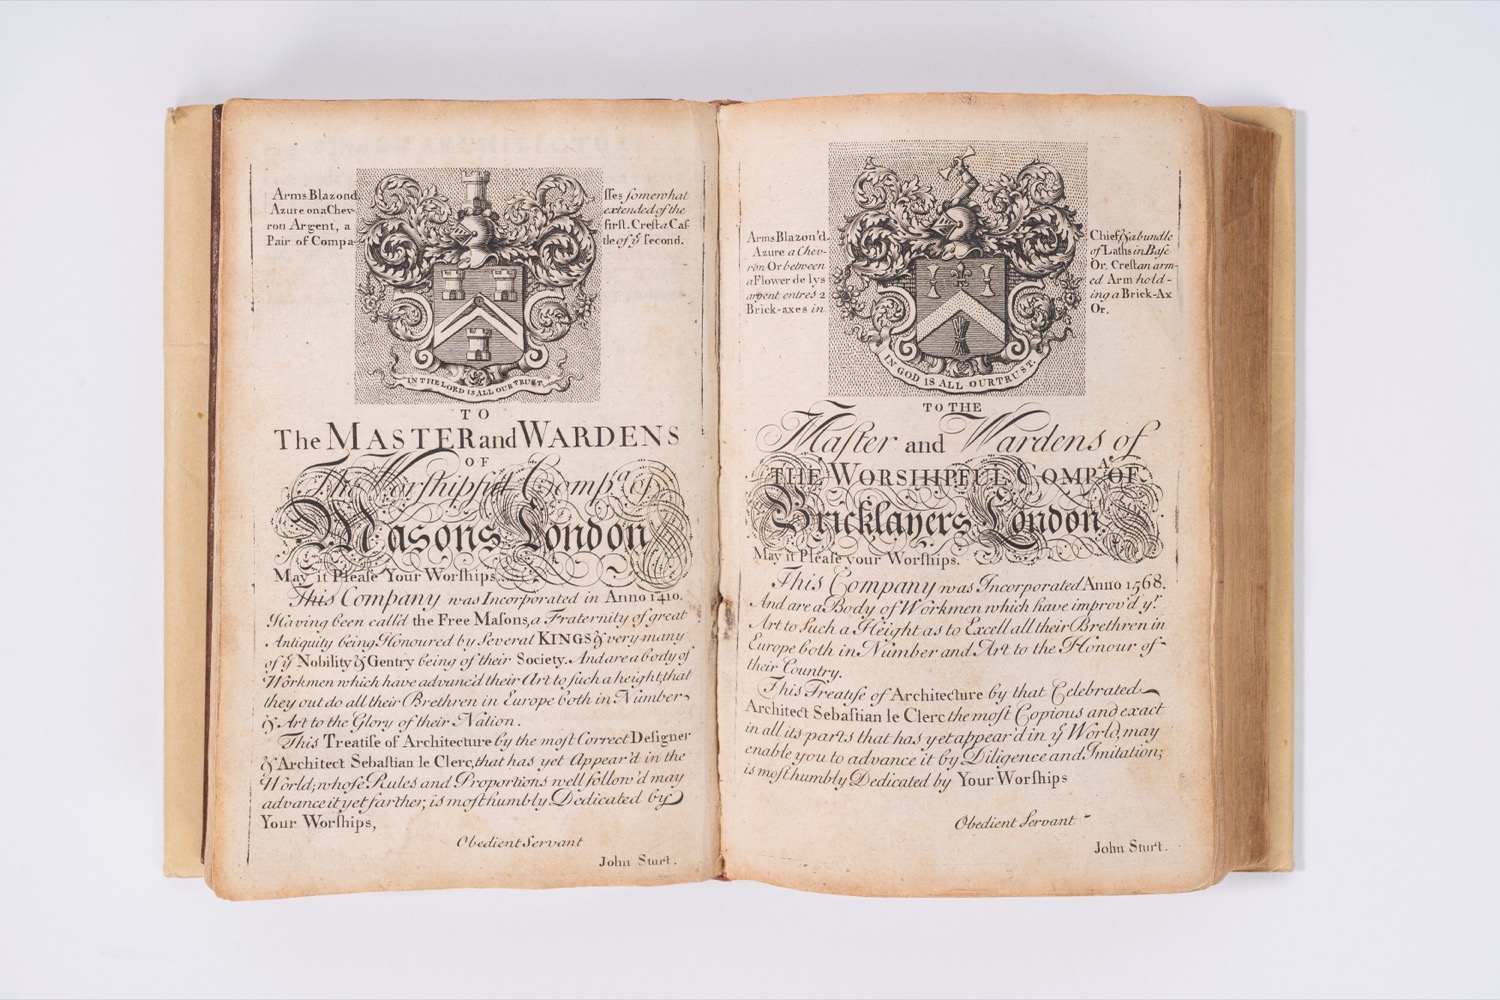 Arms Blazond
Azure on a Chev-
ron Argent, a
Pair of Compa-
ſſes ſomewhat
extended of the
firſt. Creſt a Caſ-
tle of yͤ ſecond.
IN THE LORD IS ALL OUR TRUST.
TO
The MASTER and WARDENS
OF
The Worſhipfull Compᵃ. of
Masons London
May it Pleaſe Your Worſhips.
This Company was Incorporated in Anno 1410.
Having been call'd the Free Maſons, a Fraternity of great
Antiquity being Honoured by ſeveral KINGS & very many
of yͤ Nobility & Gentry being of their Society. And are a body of
Workmen which have advanc'd their Art to ſuch a height, that
they out do all their Brethren in Europe both in Number
& Art to the Glory of their Nation.
This Treatiſe of Architecture by the moſt Correct Deſigner
& Architect Sebaſtian le Clerc, that has yet Appear'd in the
World; whoſe Rules and Proportions well follow'd may
advance it yet farther; is moſt humbly Dedicated by
Your Worſhips,
Obedient Servant
John Sturt.
Arms Blazon'd.
Azure a Chev-
ron Or between
a Flower de lys
argent entres 2
Brick-axes in
Chief, & a bundle
of Laths in Baſe
Or. Creſt an arm-
ed Arm hold-
ing a Brick-Ax
Or.
IN GOD IS ALL OUR TRUST.
TO THE
Maſter and Wardens of
THE WORSHIPFUL COMPᴬ. OF
Bricklayers London
May it Pleaſe your Worſhips.
This Company was Incorporated Anno 1568.
And are a Body of Workmen which have improv'd yʳ.
Art to ſuch a Height as to Excell all their Brethren in
Europe both in Number and Art to the Honour of
their Country.
This Treatiſe of Architecture by that Celebrated
Architect Sebaſtian le Clerc the moſt Copious and exact
in all its parts that has yet appear'd in yͤ World, may
enable you to advance it by Diligence and Imitation;
is moſt humbly Dedicated by Your Worſhips
Obedient Servant
John Sturt.